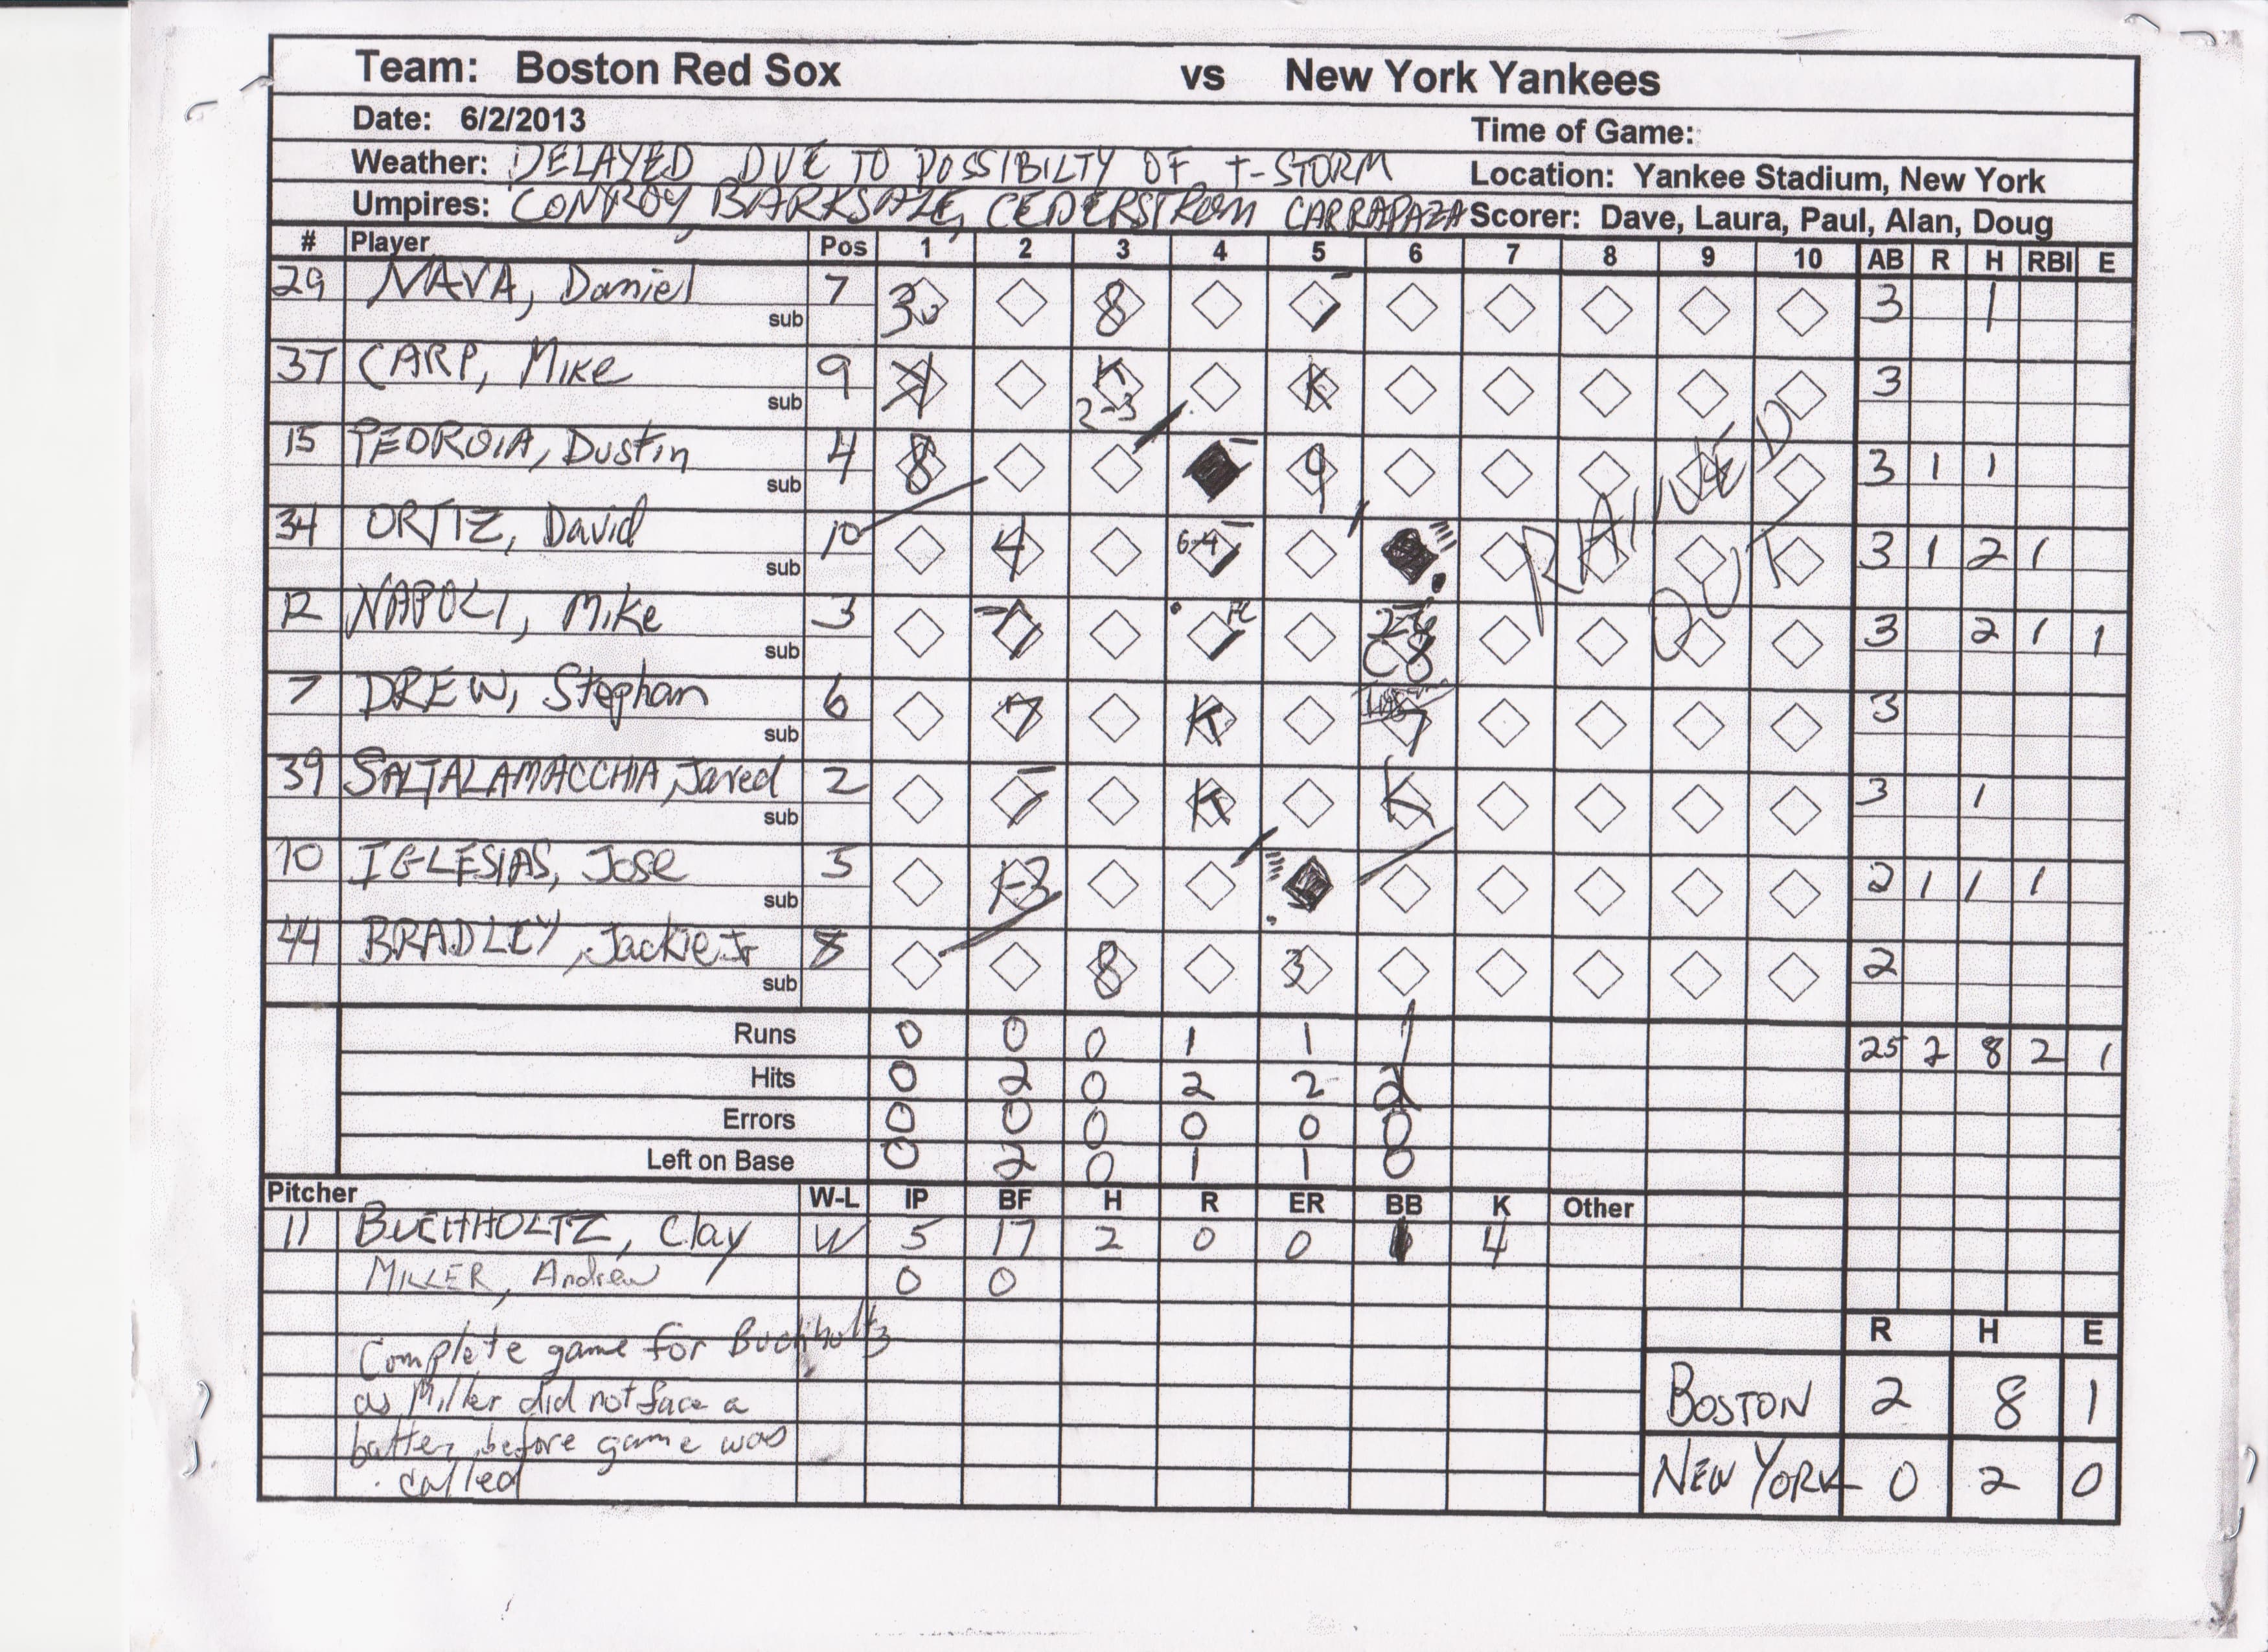 Team: Boston Red Sox vs New York Yankees
Date: 6/2/2013 Time of Game:
Weather: DELAYED DUE TO POSSIBILTY OF T-STORM Location: Yankee Stadium, New York
Umpires: CONROY, BARKSDALE, CEDERSTROM CARRAPAZA Scorer: Dave, Laura, Paul, Alan, Doug
# Player Pos 1 2 3 4 5 6 7 8 9 10 AB R H RBI E
29 NAVA, Daniel 7 3 8 3 1
sub
37 CARP, Mike 9 K K 3
sub 2-3
15 PEDROIA, Dustin 4 8 9 3 1 1
sub
34 ORTIZ, David 10 4 6-4 3 1 2 1
sub
RAINED OUT
12 NAPOLI, Mike 3 7 FC 3 2 1 1
sub
7 DREW, Stephan 6 7 K 7 3
sub
39 SALTALAMACCHIA, Jared 2 K K 3 1
sub
10 IGLESIAS, Jose 5 1-3 2 1 1 1
sub
44 BRADLEY, Jackie Jr 8 8 3 2
sub
Runs 0 0 0 1 1 25 2 8 2 1
Hits 0 2 0 2 2 2
Errors 0 0 0 0 0 0
Left on Base 0 2 0 1 1 0
Pitcher W-L IP BF H R ER BB K Other
11 BUCHHOLTZ, Clay W 5 17 2 0 0 1 4
MILLER, Andrew 0 0
Complete game for Buchholtz
as Miller did not face a
batter before game was
called
R H E
BOSTON 2 8 1
NEW YORK 0 2 0